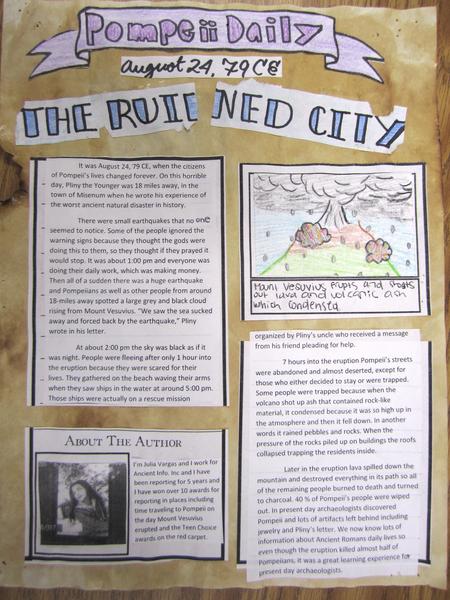 Pompeii Daily
August 24, 79 CE
THE RUINED CITY
It was August 24, 79 CE, when the citizens
of Pompeii's lives changed forever. On this horrible
day, Pliny the Younger was 18 miles away, in the
town of Misenum when he wrote his experience of
the worst ancient natural disaster in history.
There were small earthquakes that no one
seemed to notice. Some of the people ignored the
warning signs because they thought the gods were
doing this to them, so they thought if they prayed it
would stop. It was about 1:00 pm and everyone was
doing their daily work, which was making money.
Then all of a sudden there was a huge earthquake
and Pompeiians as well as other people from around
18-miles away spotted a large grey and black cloud
rising from Mount Vesuvius. "We saw the sea sucked
away and forced back by the earthquake," Pliny
wrote in his letter.
At about 2:00 pm the sky was black as if it
was night. People were fleeing after only 1 hour into
the eruption because they were scared for their
lives. They gathered on the beach waving their arms
when they saw ships in the water at around 5:00 pm.
Those ships were actually on a rescue mission
Mount Vesuvius erupts and shoots
out lava and volcanic ash
which condensed.
organized by Pliny's uncle who received a message
from his friend pleading for help.
7 hours into the eruption Pompeii's streets
were abandoned and almost deserted, except for
those who either decided to stay or were trapped.
Some people were trapped because when the
volcano shot up ash that contained rock-like
material, it condensed because it was so high up in
the atmosphere and then it fell down. In another
words it rained pebbles and rocks. When the
pressure of the rocks piled up on buildings the roofs
collapsed trapping the residents inside.
Later in the eruption lava spilled down the
mountain and destroyed everything in its path so all
of the remaining people burned to death and turned
to charcoal. 40 % of Pompeii's people were wiped
out. In present day archaeologists discovered
Pompeii and lots of artifacts left behind including
jewelry and Pliny's letter. We now know lots of
information about Ancient Romans daily lives so
even though the eruption killed almost half of
Pompeiians, it was a great learning experience for
present day archaeologists.
ABOUT THE AUTHOR
I'm Julia Vargas and I work for
Ancient Info. Inc and I have
been reporting for 5 years and
I have won over 10 awards for
reporting in places including
time traveling to Pompeii on
the day Mount Vesuvius
erupted and the Teen Choice
awards on the red carpet.